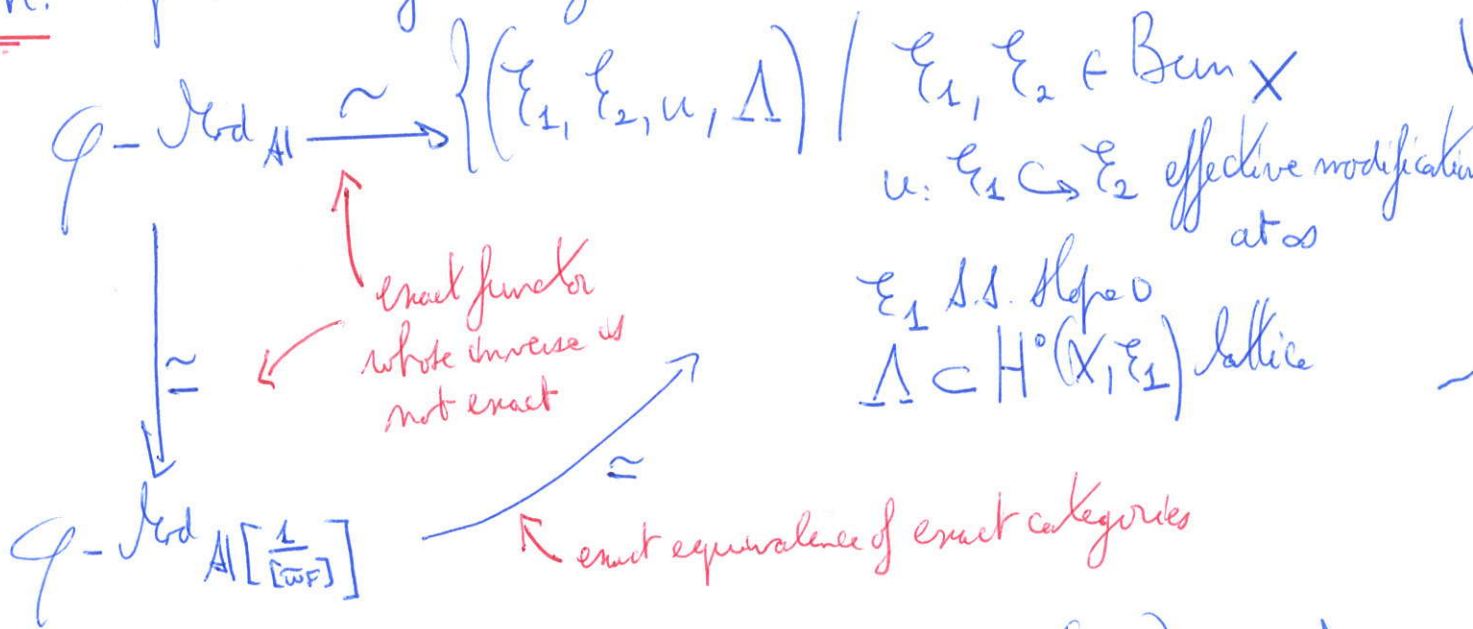 φ-Mod_𝔸 ⥲ {(ℰ₁, ℰ₂, u, Λ) / ℰ₁, ℰ₂ ∈ Bun X
u: ℰ₁ ↪ ℰ₂ effective modification
at ∞
ℰ₁ s.s. slope 0
Λ ⊂ H°(X, ℰ₁) lattice
exact functor
whose inverse is
not exact
≃
≃
φ-Mod_𝔸[1/[ϖ_F]]
exact equivalence of exact categories